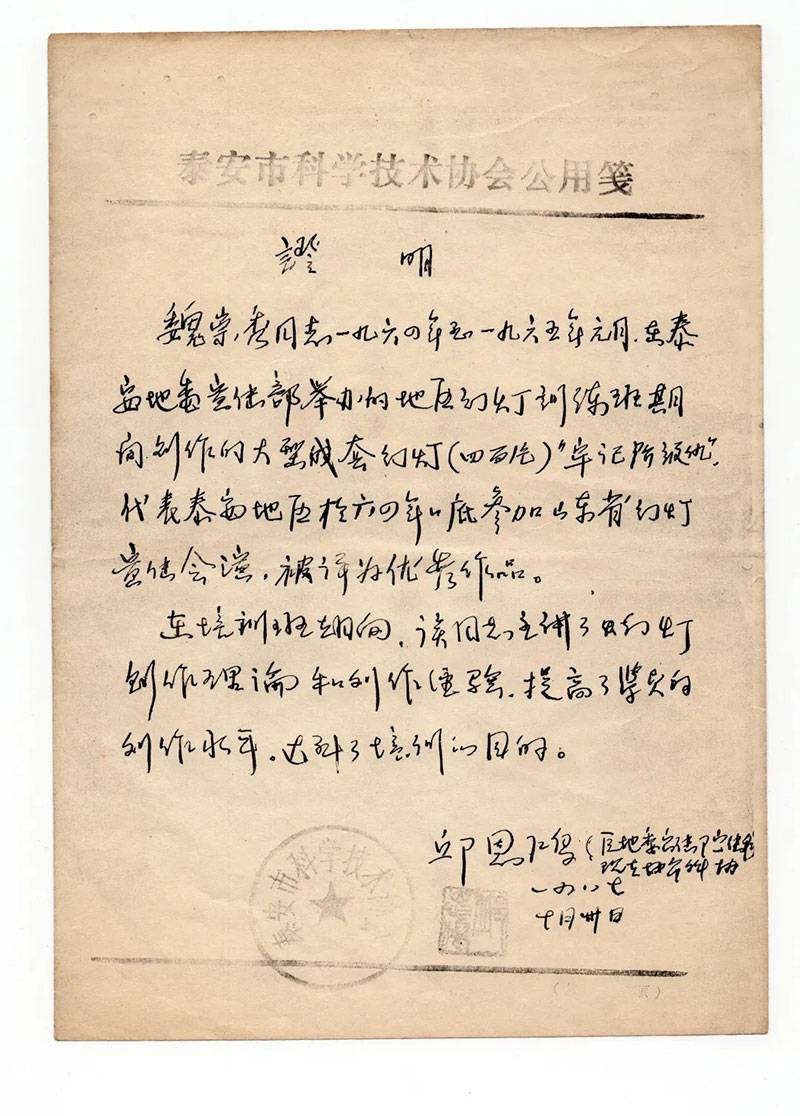 泰安市科学技术协会公用笺
證 明
魏崇秀同志一九六四年至一九六五年元月.在泰
安地委宣传部举办的地区幻灯训练班期
间.创作的大型成套幻灯(四百片)“牢记阶级仇”,
代表泰安地区于六四年底参加山东省幻灯
宣传会演,被评为优秀作品。
在培训班期间,该同志主讲了幻灯
创作理论和创作经验,提高了学员的
创作水平。达到了培训的目的。
邱恩 地委宣传部
一九八七
十月卅日
泰安市科学技术